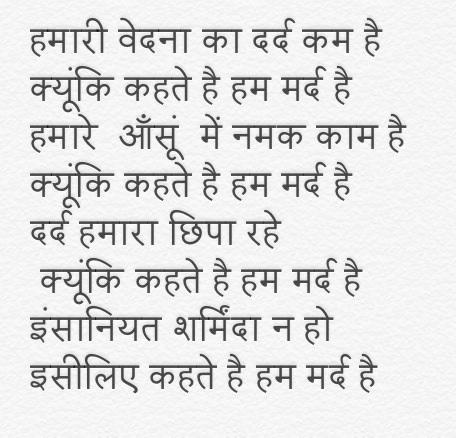 हमारी वेदना का दर्द कम है
क्यूंकि कहते है हम मर्द है
हमारे  आँसूं  में नमक काम है
क्यूंकि कहते है हम मर्द है
दर्द हमारा छिपा रहे
क्यूंकि कहते है हम मर्द है
इंसानियत शर्मिंदा न हो
इसीलिए कहते है हम मर्द है